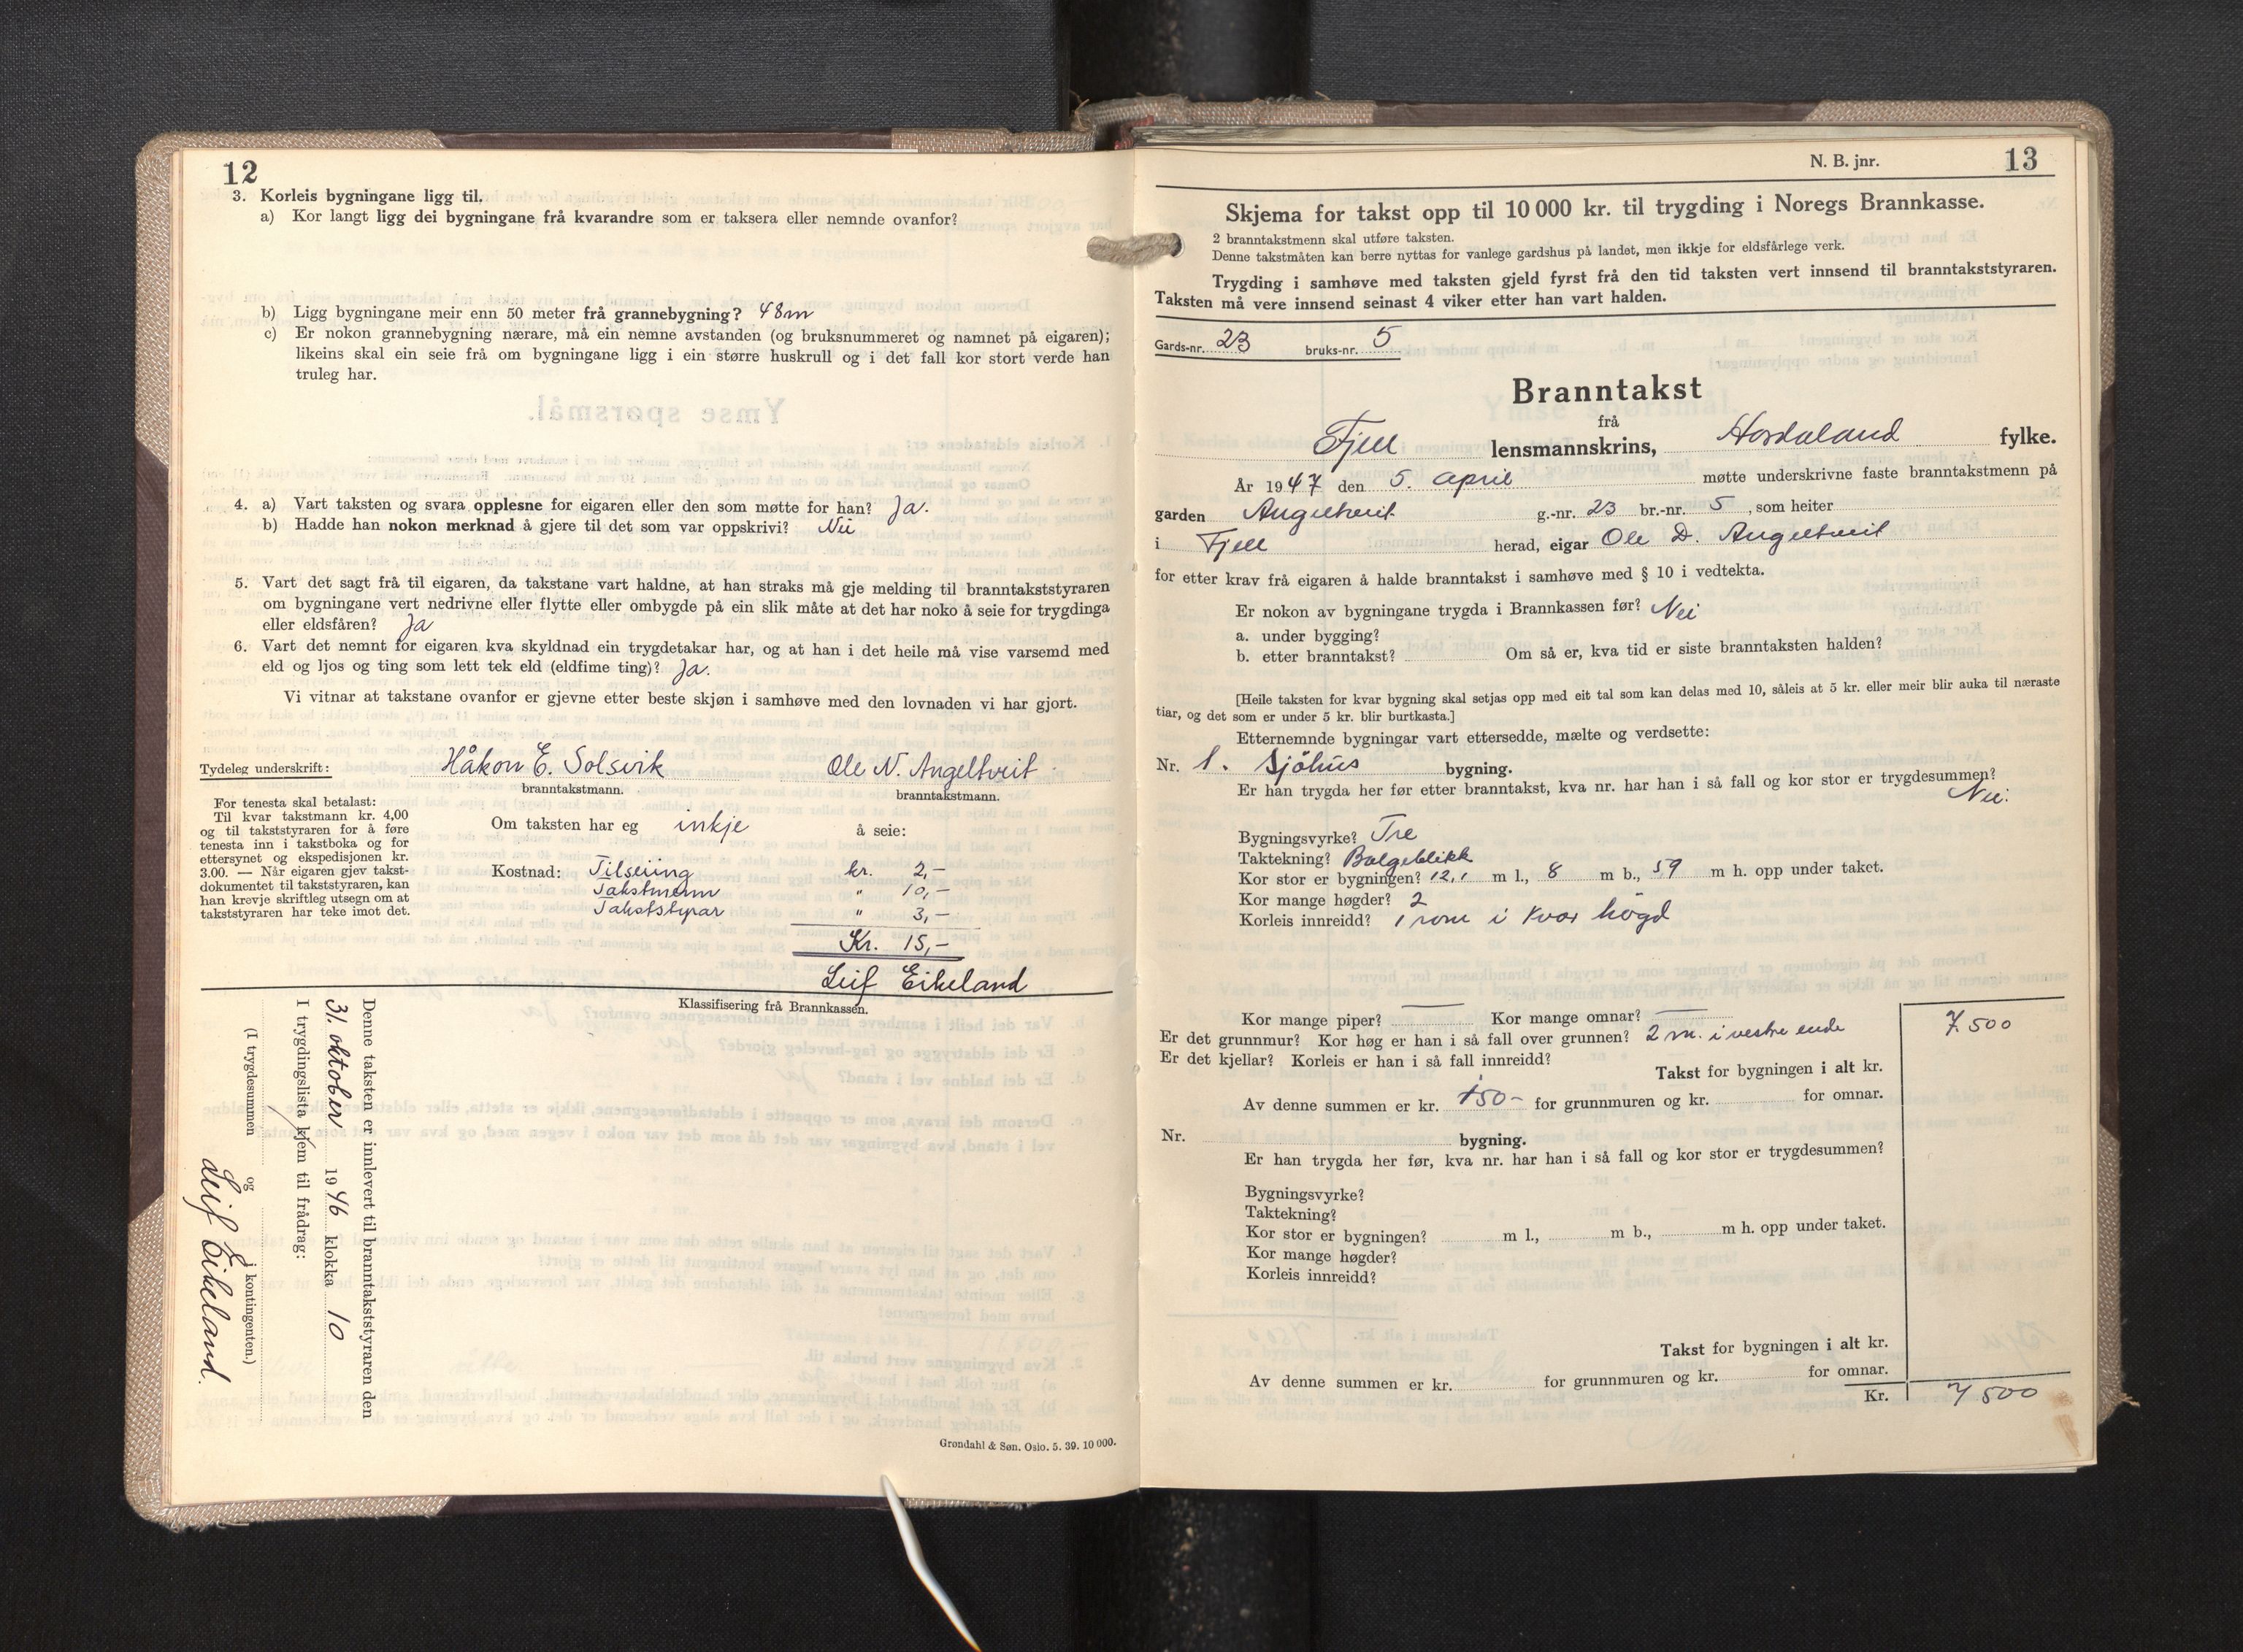 12
3. Korleis bygningane ligg til.
a) Kor langt ligg dei bygningane frå kvarandre som er taksera eller nemnde ovanfor?
b) Ligg bygningane meir enn 50 meter frå grannebygning? 48m
c) Er nokon grannebygning nærare, må ein nemne avstanden (og bruksnummeret og namnet på eigaren);
likeins skal ein seie frå om bygningane ligg i ein større huskrull og i det fall kor stort verde han
truleg har.
4. a) Vart taksten og svara opplesne for eigaren eller den som møtte for han? Ja.
b) Hadde han nokon merknad å gjere til det som var oppskrivi? Nei
5. Vart det sagt frå til eigaren, da takstane vart haldne, at han straks må gje melding til branntakststyraren
om bygningane vert nedrivne eller flytte eller ombygde på ein slik måte at det har noko å seie for trygdinga
eller eldsfåren? Ja
6. Vart det nemnt for eigaren kva skyldnad ein trygdetakar har, og at han i det heile må vise varsemd med
eld og ljos og ting som lett tek eld (eldfime ting)? Ja.
Vi vitnar at takstane ovanfor er gjevne etter beste skjøn i samhøve med den lovnaden vi har gjort.
Tydeleg underskrift: Håkon E. Solsvik Ole N. Angeltveit
branntakstmann. branntakstmann.
For tenesta skal betalast:
Til kvar takstmann kr. 4,00
og til takststyraren for å føre
tenesta inn i takstboka og for
ettersynet og ekspedisjonen kr.
3.00. — Når eigaren gjev takst-
dokumentet til takststyraren, kan
han krevje skriftleg utsegn om at
takststyraren har teke imot det.
Om taksten har eg inkje å seie:
Kostnad: Tilseiing kr. 2,-
Takstmenn " 10,-
Takststyrar " 3,-
Kr. 15,-
Leif Eikeland
Klassifisering frå Brannkassen.
Denne taksten er innlevert til branntakststyraren den
31. oktober 1946 klokka 10
I trygdingslista kjem til frådrag:
(I trygdesummen og i kontingenten.)
Leif Eikeland.
Grøndahl & Søn. Oslo. 5. 39. 10 000.
N. B. jnr. 13
Skjema for takst opp til 10 000 kr. til trygding i Noregs Brannkasse.
2 branntakstmenn skal utføre taksten.
Denne takstmåten kan berre nyttas for vanlege gardshus på landet, men ikkje for eldsfårlege verk.
Trygding i samhøve med taksten gjeld fyrst frå den tid taksten vert innsend til branntakststyraren.
Taksten må vere innsend seinast 4 viker etter han vart halden.
Gards-nr. 23 bruks-nr. 5
Branntakst
frå
Fjell lensmannskrins, Hordaland fylke.
År 1947 den 5. april møtte underskrivne faste branntakstmenn på
garden Angeltveit g.-nr. 23 br.-nr. 5, som heiter
i Fjell herad, eigar Ole D. Angeltveit
for etter krav frå eigaren å halde branntakst i samhøve med § 10 i vedtekta.
Er nokon av bygningane trygda i Brannkassen før? Nei
a. under bygging?
b. etter branntakst? Om så er, kva tid er siste branntaksten halden?
[Heile taksten for kvar bygning skal setjas opp med eit tal som kan delas med 10, såleis at 5 kr. eller meir blir auka til næraste
tiar, og det som er under 5 kr. blir burtkasta.]
Etternemnde bygningar vart ettersedde, mælte og verdsette:
Nr. 1. Sjöhus bygning.
Er han trygda her før etter branntakst, kva nr. har han i så fall og kor stor er trygdesummen?
Nei.
Bygningsvyrke? Tre
Taktekning? Bølgeblikk
Kor stor er bygningen? 12,1 m l., 8 m b., 59 m h. opp under taket.
Kor mange høgder? 2
Korleis innreidd? 1 rom i kvar högd
Kor mange piper? — Kor mange omnar? —
Er det grunnmur? Kor høg er han i så fall over grunnen? 2 m. i vestre ende
Er det kjellar? Korleis er han i så fall innreidd?
Takst for bygningen i alt kr. 7.500
Av denne summen er kr. 150- for grunnmuren og kr. for omnar.
Nr. bygning.
Er han trygda her før, kva nr. har han i så fall og kor stor er trygdesummen?
Bygningsvyrke?
Taktekning?
Kor stor er bygningen? m l., m b., m h. opp under taket.
Kor mange høgder?
Korleis innreidd?
Takst for bygningen i alt kr.
Av denne summen er kr. for grunnmuren og kr. for omnar.
Kr. 7500